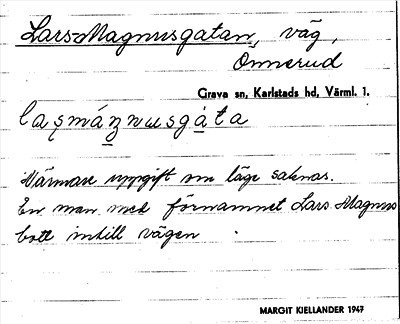 Lars-Magnusgatan, väg,
Önnerud
Grava sn, Karlstads hd, Värml. 1.
laşmánnusgáta
Närmare uppgift om läge saknas.
En man med förnamnet Lars Magnus
bott intill vägen.
MARGIT KIELLANDER 1947